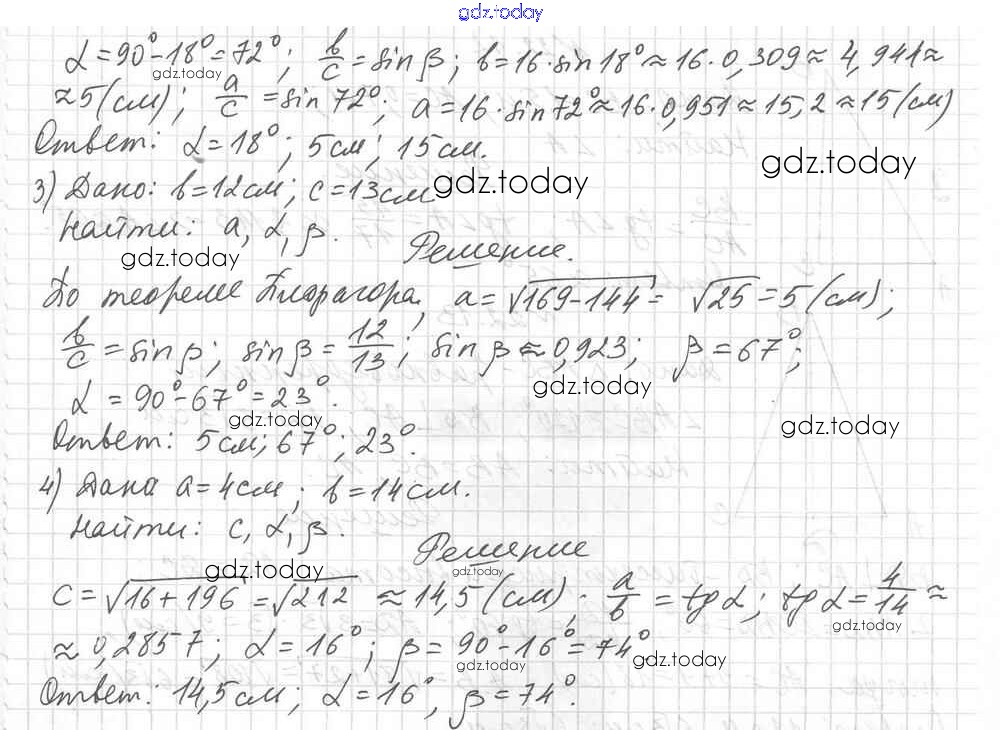 gdz.today
α = 90° − 18° = 72°; b/c = sin β; b = 16 · sin 18° ≈ 16 · 0,309 ≈ 4,941 ≈
gdz.today
≈ 5 (см); a/c = sin 72°; a = 16 · sin 72° ≈ 16 · 0,951 ≈ 15,2 ≈ 15 (см)
Ответ: α = 18°; 5 см; 15 см.
gdz.today
3) Дано: b = 12 см; c = 13 см
gdz.today
Найти: a, α, β.
Решение.
gdz.today
По теореме Пифагора, a = √(169 − 144) = √25 = 5 (см);
b/c = sin β; sin β = 12/13; sin β ≈ 0,923; β = 67°;
gdz.today
α = 90° − 67° = 23°.
gdz.today
gdz.today
Ответ: 5 см; 67°; 23°.
4) Дана a = 4 см; b = 14 см.
Найти: c, α, β.
Решение
gdz.today
gdz.today
c = √(16 + 196) = √212 ≈ 14,5 (см); a/b = tg α; tg α = 4/14 ≈
gdz.today
≈ 0,2857; α = 16°; β = 90° − 16° = 74°
gdz.today
gdz.today
Ответ: 14,5 см; α = 16°, β = 74°.